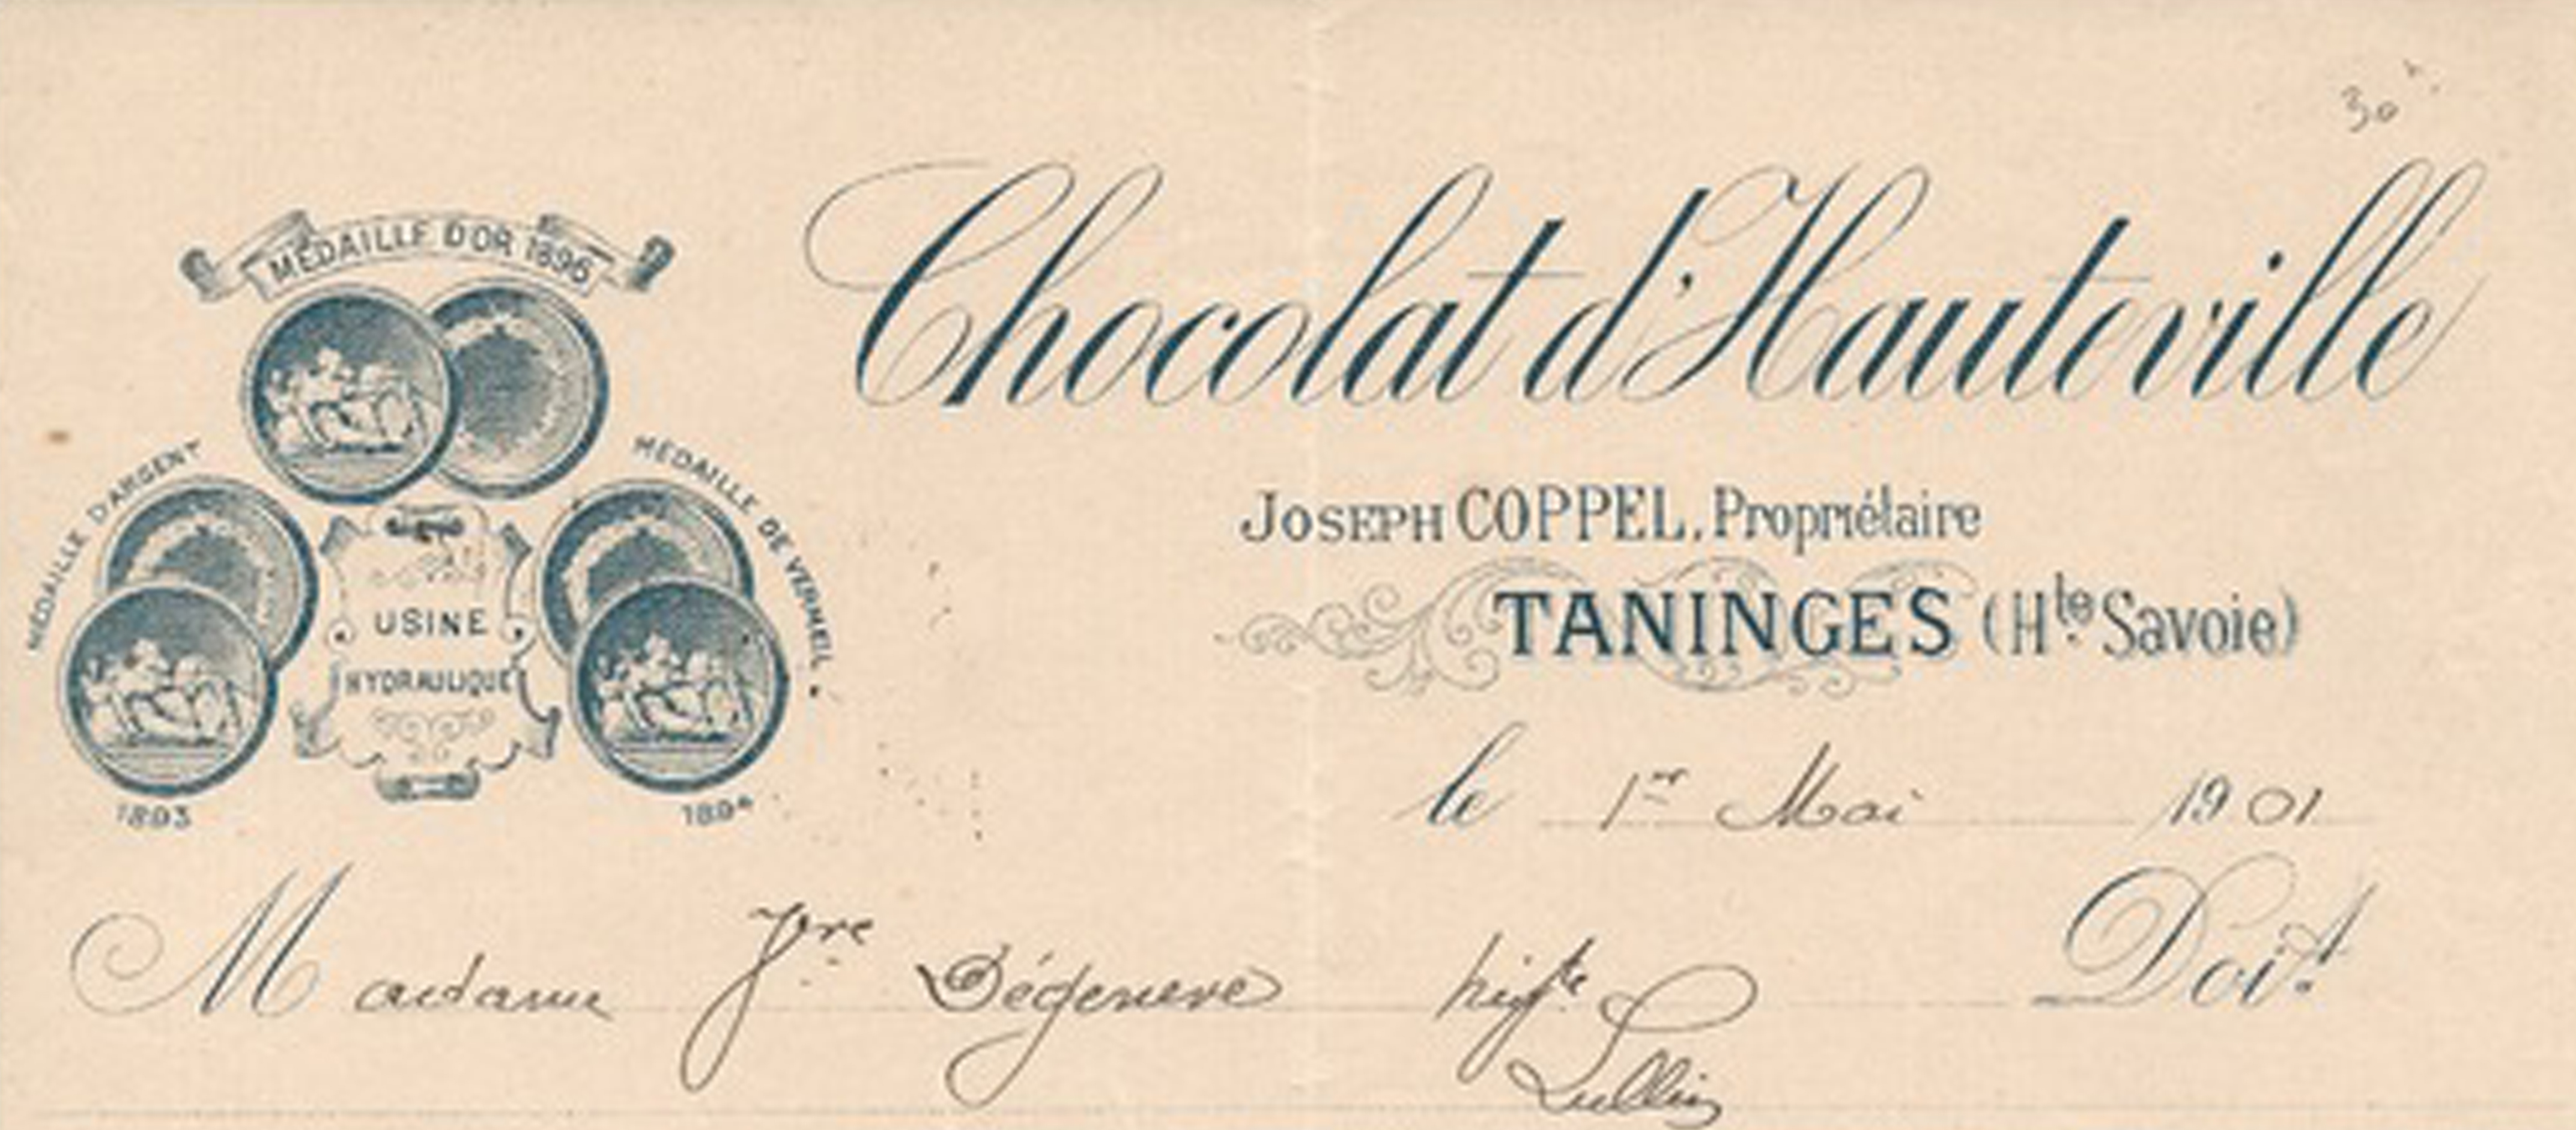 30
MÉDAILLE D'OR 1896
Chocolat d'Hauteville
MÉDAILLE D'ARGENT
MÉDAILLE DE VERMEIL
JOSEPH COPPEL, Propriétaire
USINE
HYDRAULIQUE
TANINGES (Hte Savoie)
1893
1894
le 1er Mai 1901
Madame Dégeneve Doit
Lullin